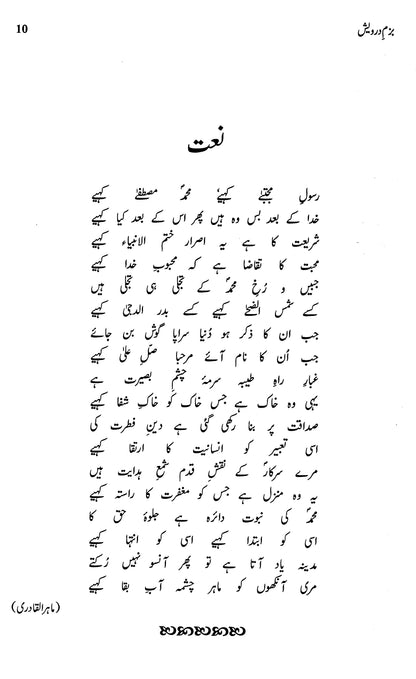 10
بزمِ درویش
نعت
رسولِ مجتبیٰ کہیے محمدؐ مصطفیٰ کہیے
خدا کے بعد بس وہ ہیں پھر اس کے بعد کیا کہیے
شریعت کا ہے یہ اصرار ختم الانبیاء کہیے
محبت کا تقاضا ہے کہ محبوبِ خدا کہیے
جبیں و رُخِ محمدؐ کے تجلی ہی تجلی ہیں
کسے شمس الضحیٰ کہیے کسے بدر الدجیٰ کہیے
جب ان کا ذکر ہو دُنیا سراپا گوش بن جائے
جب اُن کا نام آئے مرحبا صلِّ علیٰ کہیے
غبارِ راہِ طیبہ سرمۂ چشمِ بصیرت ہے
یہی وہ خاک ہے جس خاک کو خاکِ شفا کہیے
صداقت پر بنا رکھی گئی ہے دینِ فطرت کی
اسی تعبیر کو انسانیت کا ارتقا کہیے
مرے سرکارؐ کے نقشِ قدم شمعِ ہدایت ہیں
یہ وہ منزل ہے جس کو مغفرت کا راستہ کہیے
محمدؐ کی نبوت دائرہ ہے جلوۂ حق کا
اسی کو ابتدا کہیے اسی کو انتہا کہیے
مدینہ یاد آتا ہے تو پھر آنسو نہیں رُکتے
مری آنکھوں کو ماہر چشمہ آبِ بقا کہیے
(ماہر القادری)